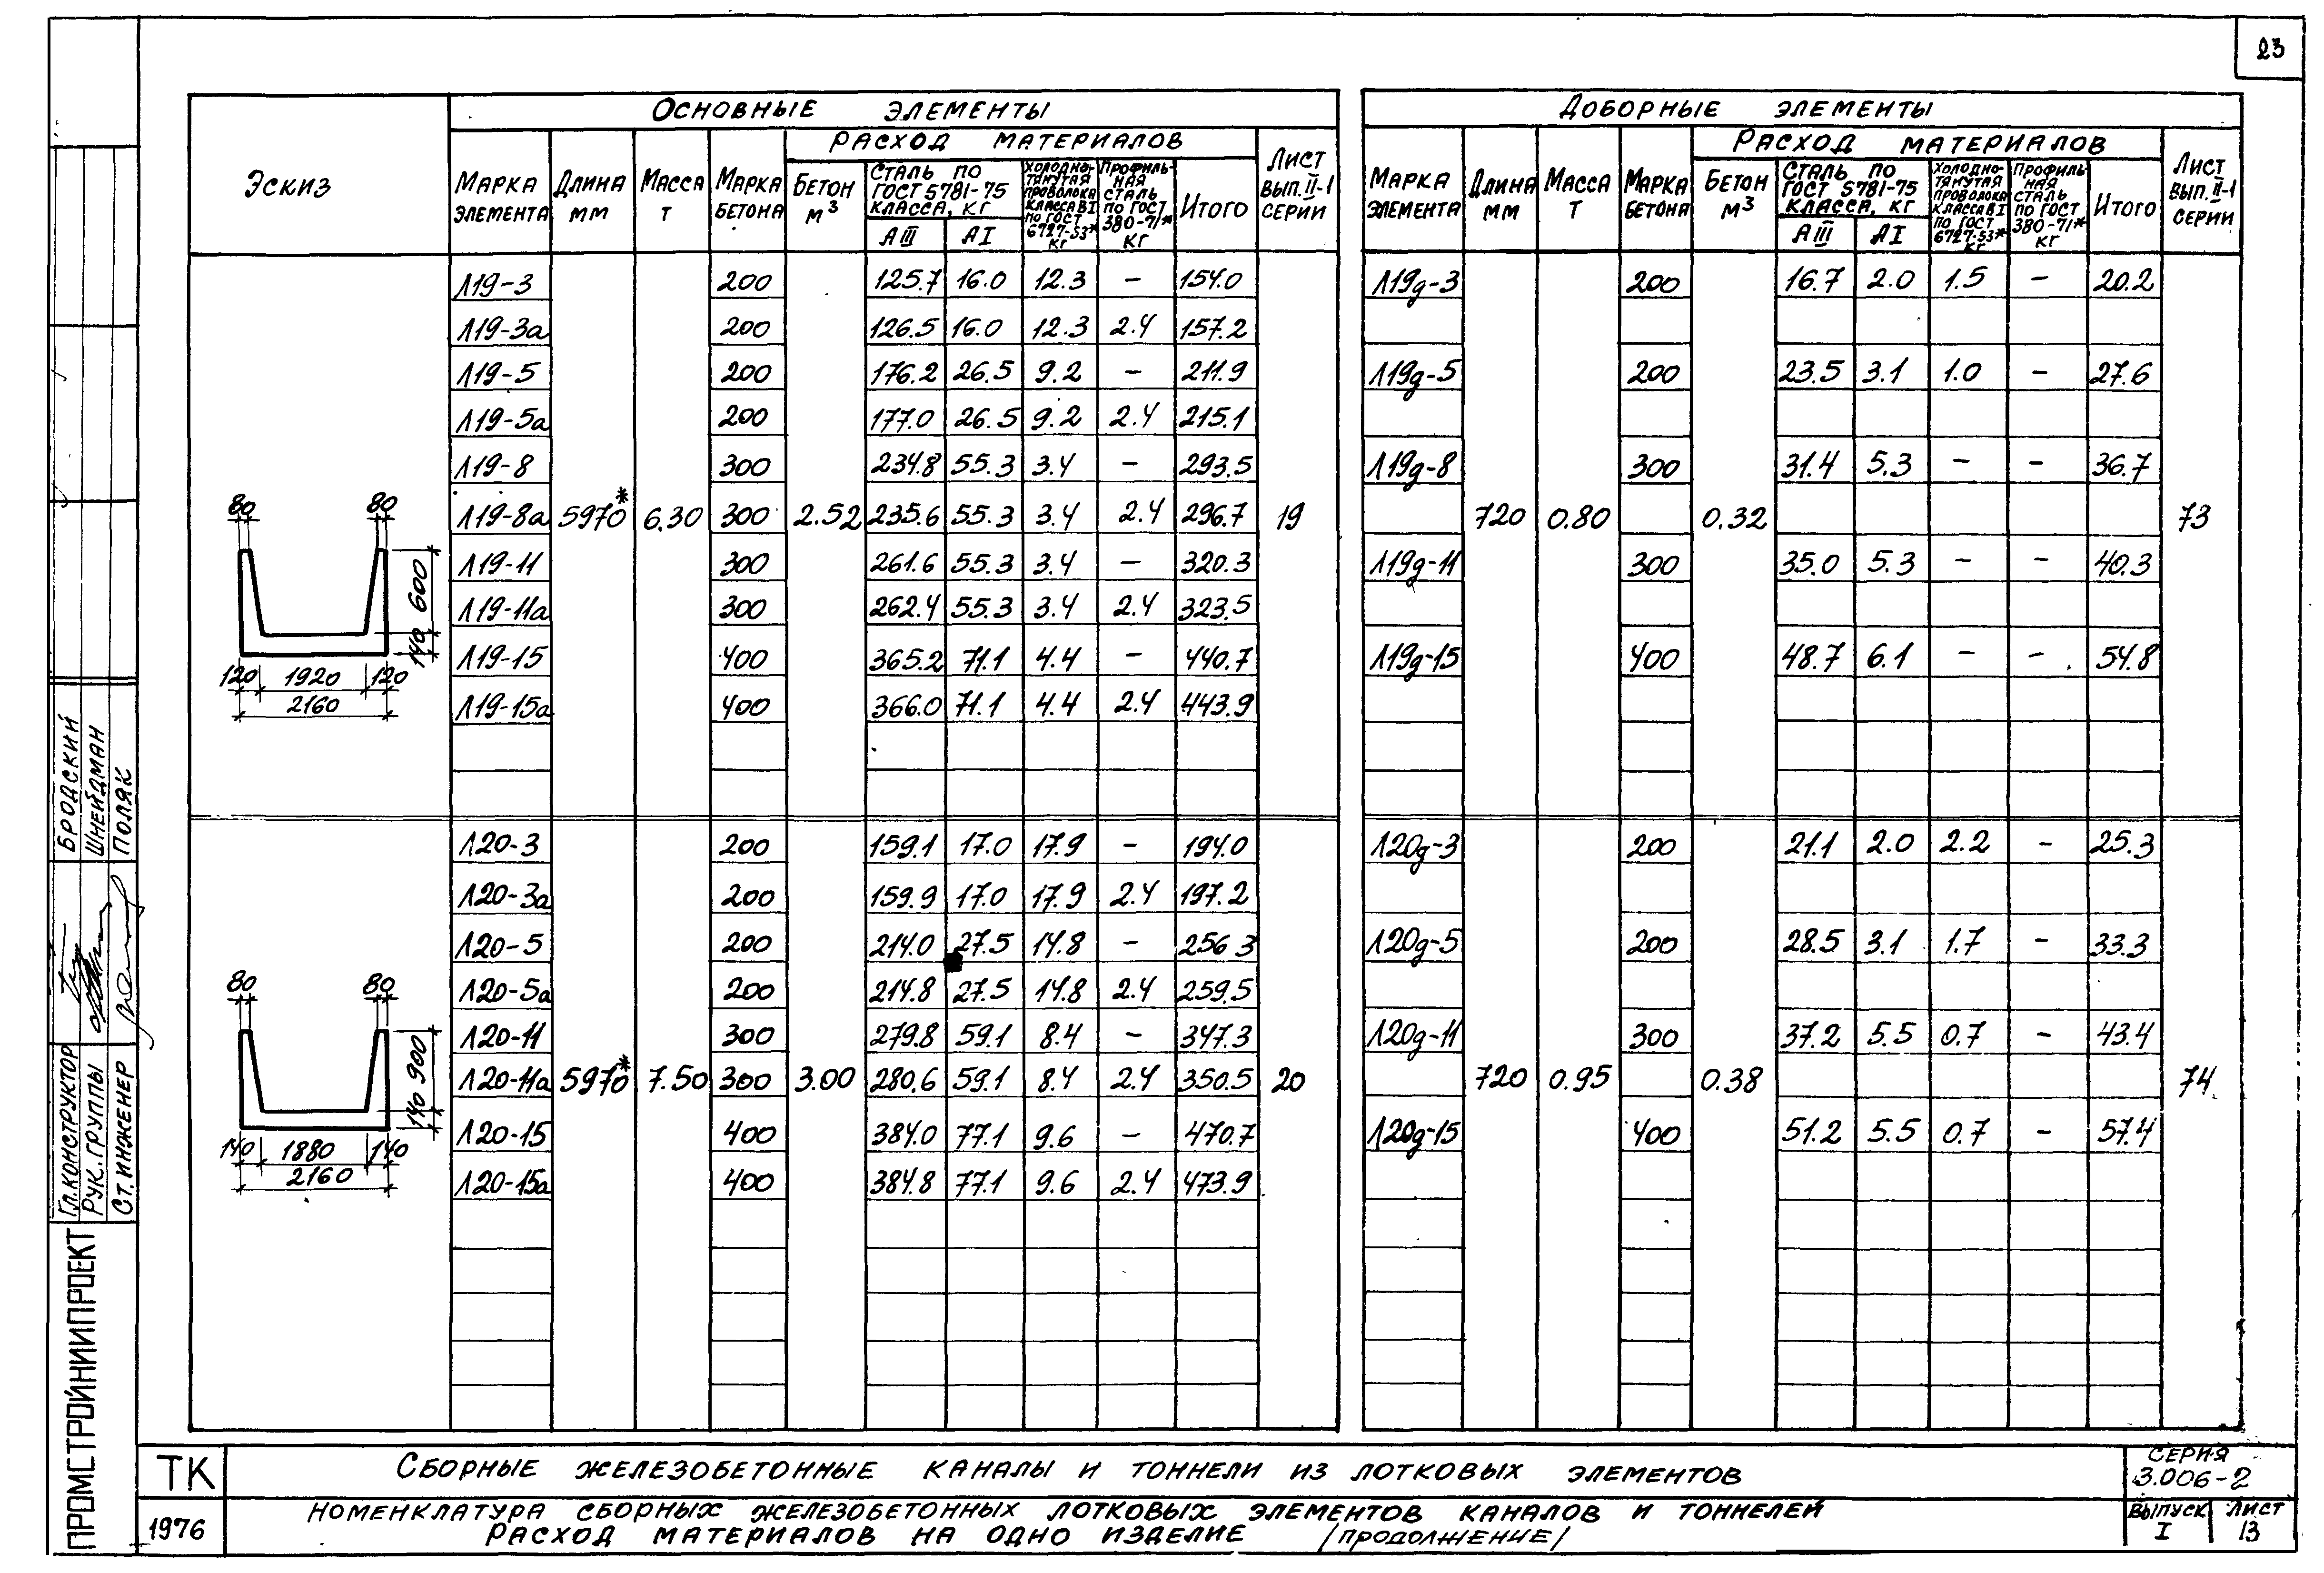 23
Эскиз
Основные элементы
Марка элемента
Длина мм
Масса т
Марка бетона
Расход материалов
Бетон м³
Сталь по ГОСТ 5781-75 класса, кг
АIII АI
Холодно-тянутая проволока класса ВI по ГОСТ 6727-53* кг
Профиль-ная сталь по ГОСТ 380-71* кг
Итого
Лист вып. II-1 серии
Доборные элементы
Марка элемента
Длина мм
Масса т
Марка бетона
Расход материалов
Бетон м³
Сталь по ГОСТ 5781-75 класса, кг
АIII АI
Холодно-тянутая проволока класса ВI по ГОСТ 6727-53* кг
Профиль-ная сталь по ГОСТ 380-71* кг
Итого
Лист вып. II-1 серии
Л19-3 200 125.7 16.0 12.3 – 154.0 Л19д-3 200 16.7 2.0 1.5 – 20.2
Л19-3а 200 126.5 16.0 12.3 2.4 157.2
Л19-5 200 176.2 26.5 9.2 – 211.9 Л19д-5 200 23.5 3.1 1.0 – 27.6
Л19-5а 200 177.0 26.5 9.2 2.4 215.1
Л19-8 300 234.8 55.3 3.4 – 293.5 Л19д-8 300 31.4 5.3 – – 36.7
Л19-8а 5970* 6.30 300 2.52 235.6 55.3 3.4 2.4 296.7 19 720 0.80 0.32 73
Л19-11 300 261.6 55.3 3.4 – 320.3 Л19д-11 300 35.0 5.3 – – 40.3
Л19-11а 300 262.4 55.3 3.4 2.4 323.5
Л19-15 400 365.2 71.1 4.4 – 440.7 Л19д-15 400 48.7 6.1 – – 54.8
Л19-15а 400 366.0 71.1 4.4 2.4 443.9
80 80
600
140
120 1920 120
2160
Л20-3 200 159.1 17.0 17.9 – 194.0 Л20д-3 200 21.1 2.0 2.2 – 25.3
Л20-3а 200 159.9 17.0 17.9 2.4 197.2
Л20-5 200 214.0 27.5 14.8 – 256.3 Л20д-5 200 28.5 3.1 1.7 – 33.3
Л20-5а 200 214.8 27.5 14.8 2.4 259.5
Л20-11 300 279.8 59.1 8.4 – 347.3 Л20д-11 300 37.2 5.5 0.7 – 43.4
Л20-11а 5970* 7.50 300 3.00 280.6 59.1 8.4 2.4 350.5 20 720 0.95 0.38 74
Л20-15 400 384.0 77.1 9.6 – 470.7 Л20д-15 400 51.2 5.5 0.7 – 57.4
Л20-15а 400 384.8 77.1 9.6 2.4 473.9
80 80
900
140
140 1880 140
2160
Бродский
Шнейдман
Поляк
Гл. конструктор
Рук. группы
Ст. инженер
ПРОМСТРОЙНИИПРОЕКТ
ТК
1976
Сборные железобетонные каналы и тоннели из лотковых элементов
Номенклатура сборных железобетонных лотковых элементов каналов и тоннелей
Расход материалов на одно изделие /продолжение/
Серия
3.006-2
Выпуск Лист
I 13